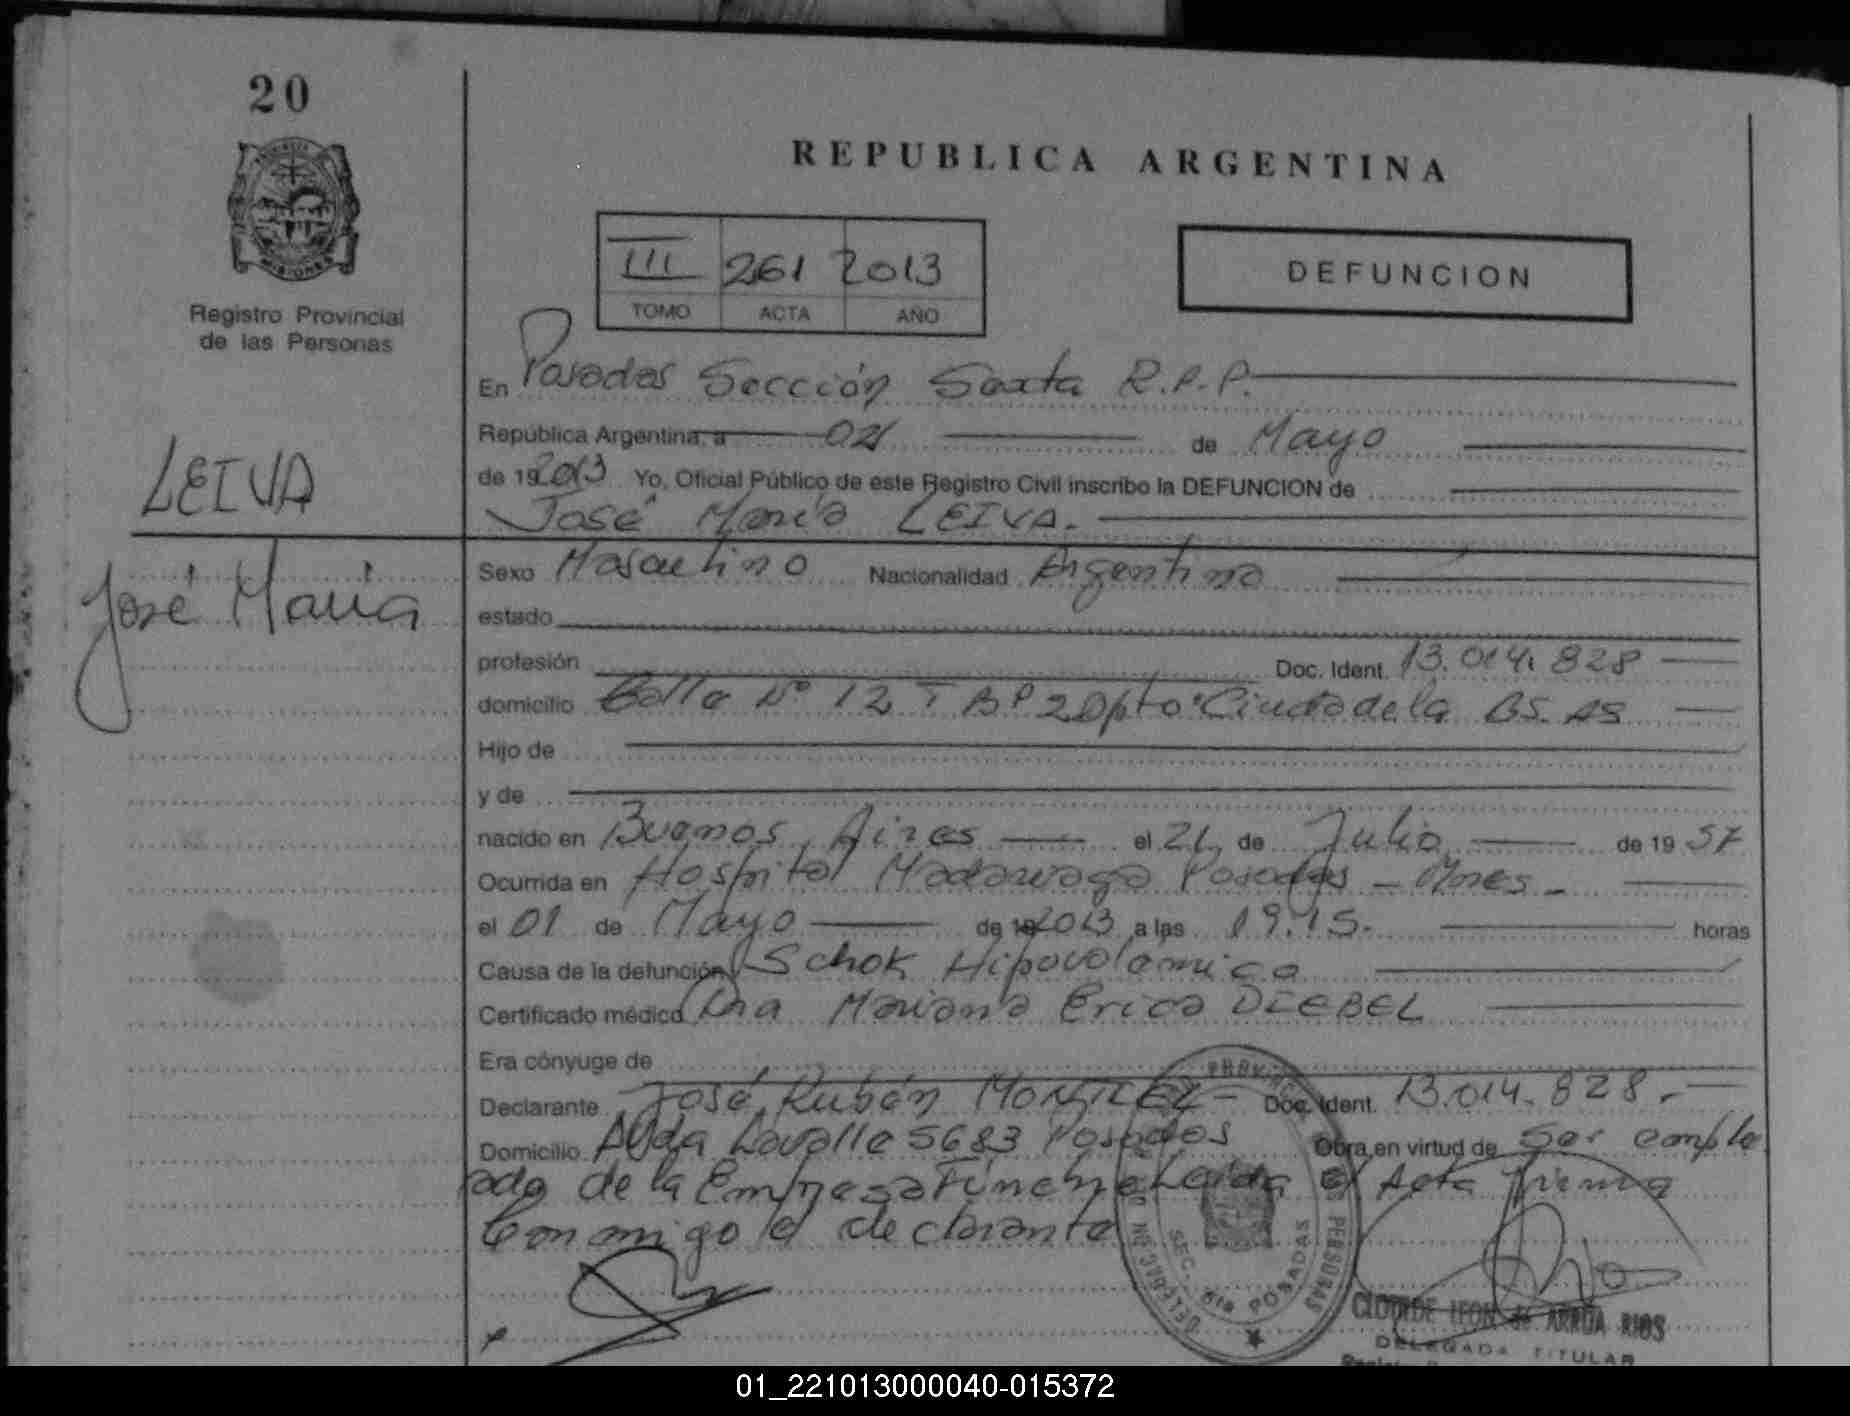 20
MISIONES
Registro Provincial
de las Personas
REPUBLICA ARGENTINA
III 261 2013
TOMO ACTA AÑO
DEFUNCION
En Posadas Sección Sexta R.P.P.
República Argentina, a 02 de Mayo
LEIVA
de 19 2013 Yo, Oficial Público de este Registro Civil inscribo la DEFUNCION de
José María LEIVA.
José María
Sexo Masculino Nacionalidad Argentina
estado
profesión Doc. Ident. 13.014.828
domicilio Calle Nº 12 T AP 2 Dpto Ciudadela BS. AS
Hijo de
y de
nacido en Buenos Aires el 21 de Julio de 19 57
Ocurrida en Hospital Madariaga Posadas - Mnes -
el 01 de Mayo de 19 2013 a las 19.15. horas
Causa de la defunción Schok Hipovolémico
Certificado médico Dra Mariana Erica DIEBEL
Era cónyuge de
Declarante José Rubén MONTIEL - Doc. Ident. 13.014.828.-
Domicilio Avda Lavalle 5683 Posadas Obra en virtud de ser emple
ado de la Empresa Leída el Acta firma
conmigo el declarante
PROVINCIA
PERSONAS
SEC. 6ta POSADAS
CLOTILDE LEON de ARRUA RIOS
DELEGADA TITULAR
01_221013000040-015372